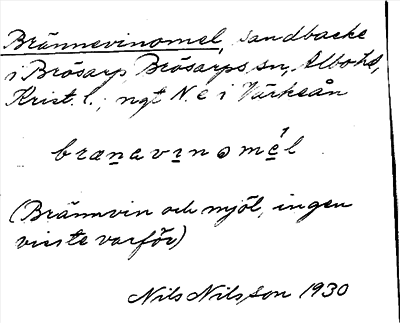 Brännevinomel, sandbacke
i Brösarp Brösarps sn, Albo hd,
Krist. l.; ngt N. ö i Värkeån
brænavinomél
(Brännvin och mjöl, ingen
visste varför)
Nils Nilsson 1930